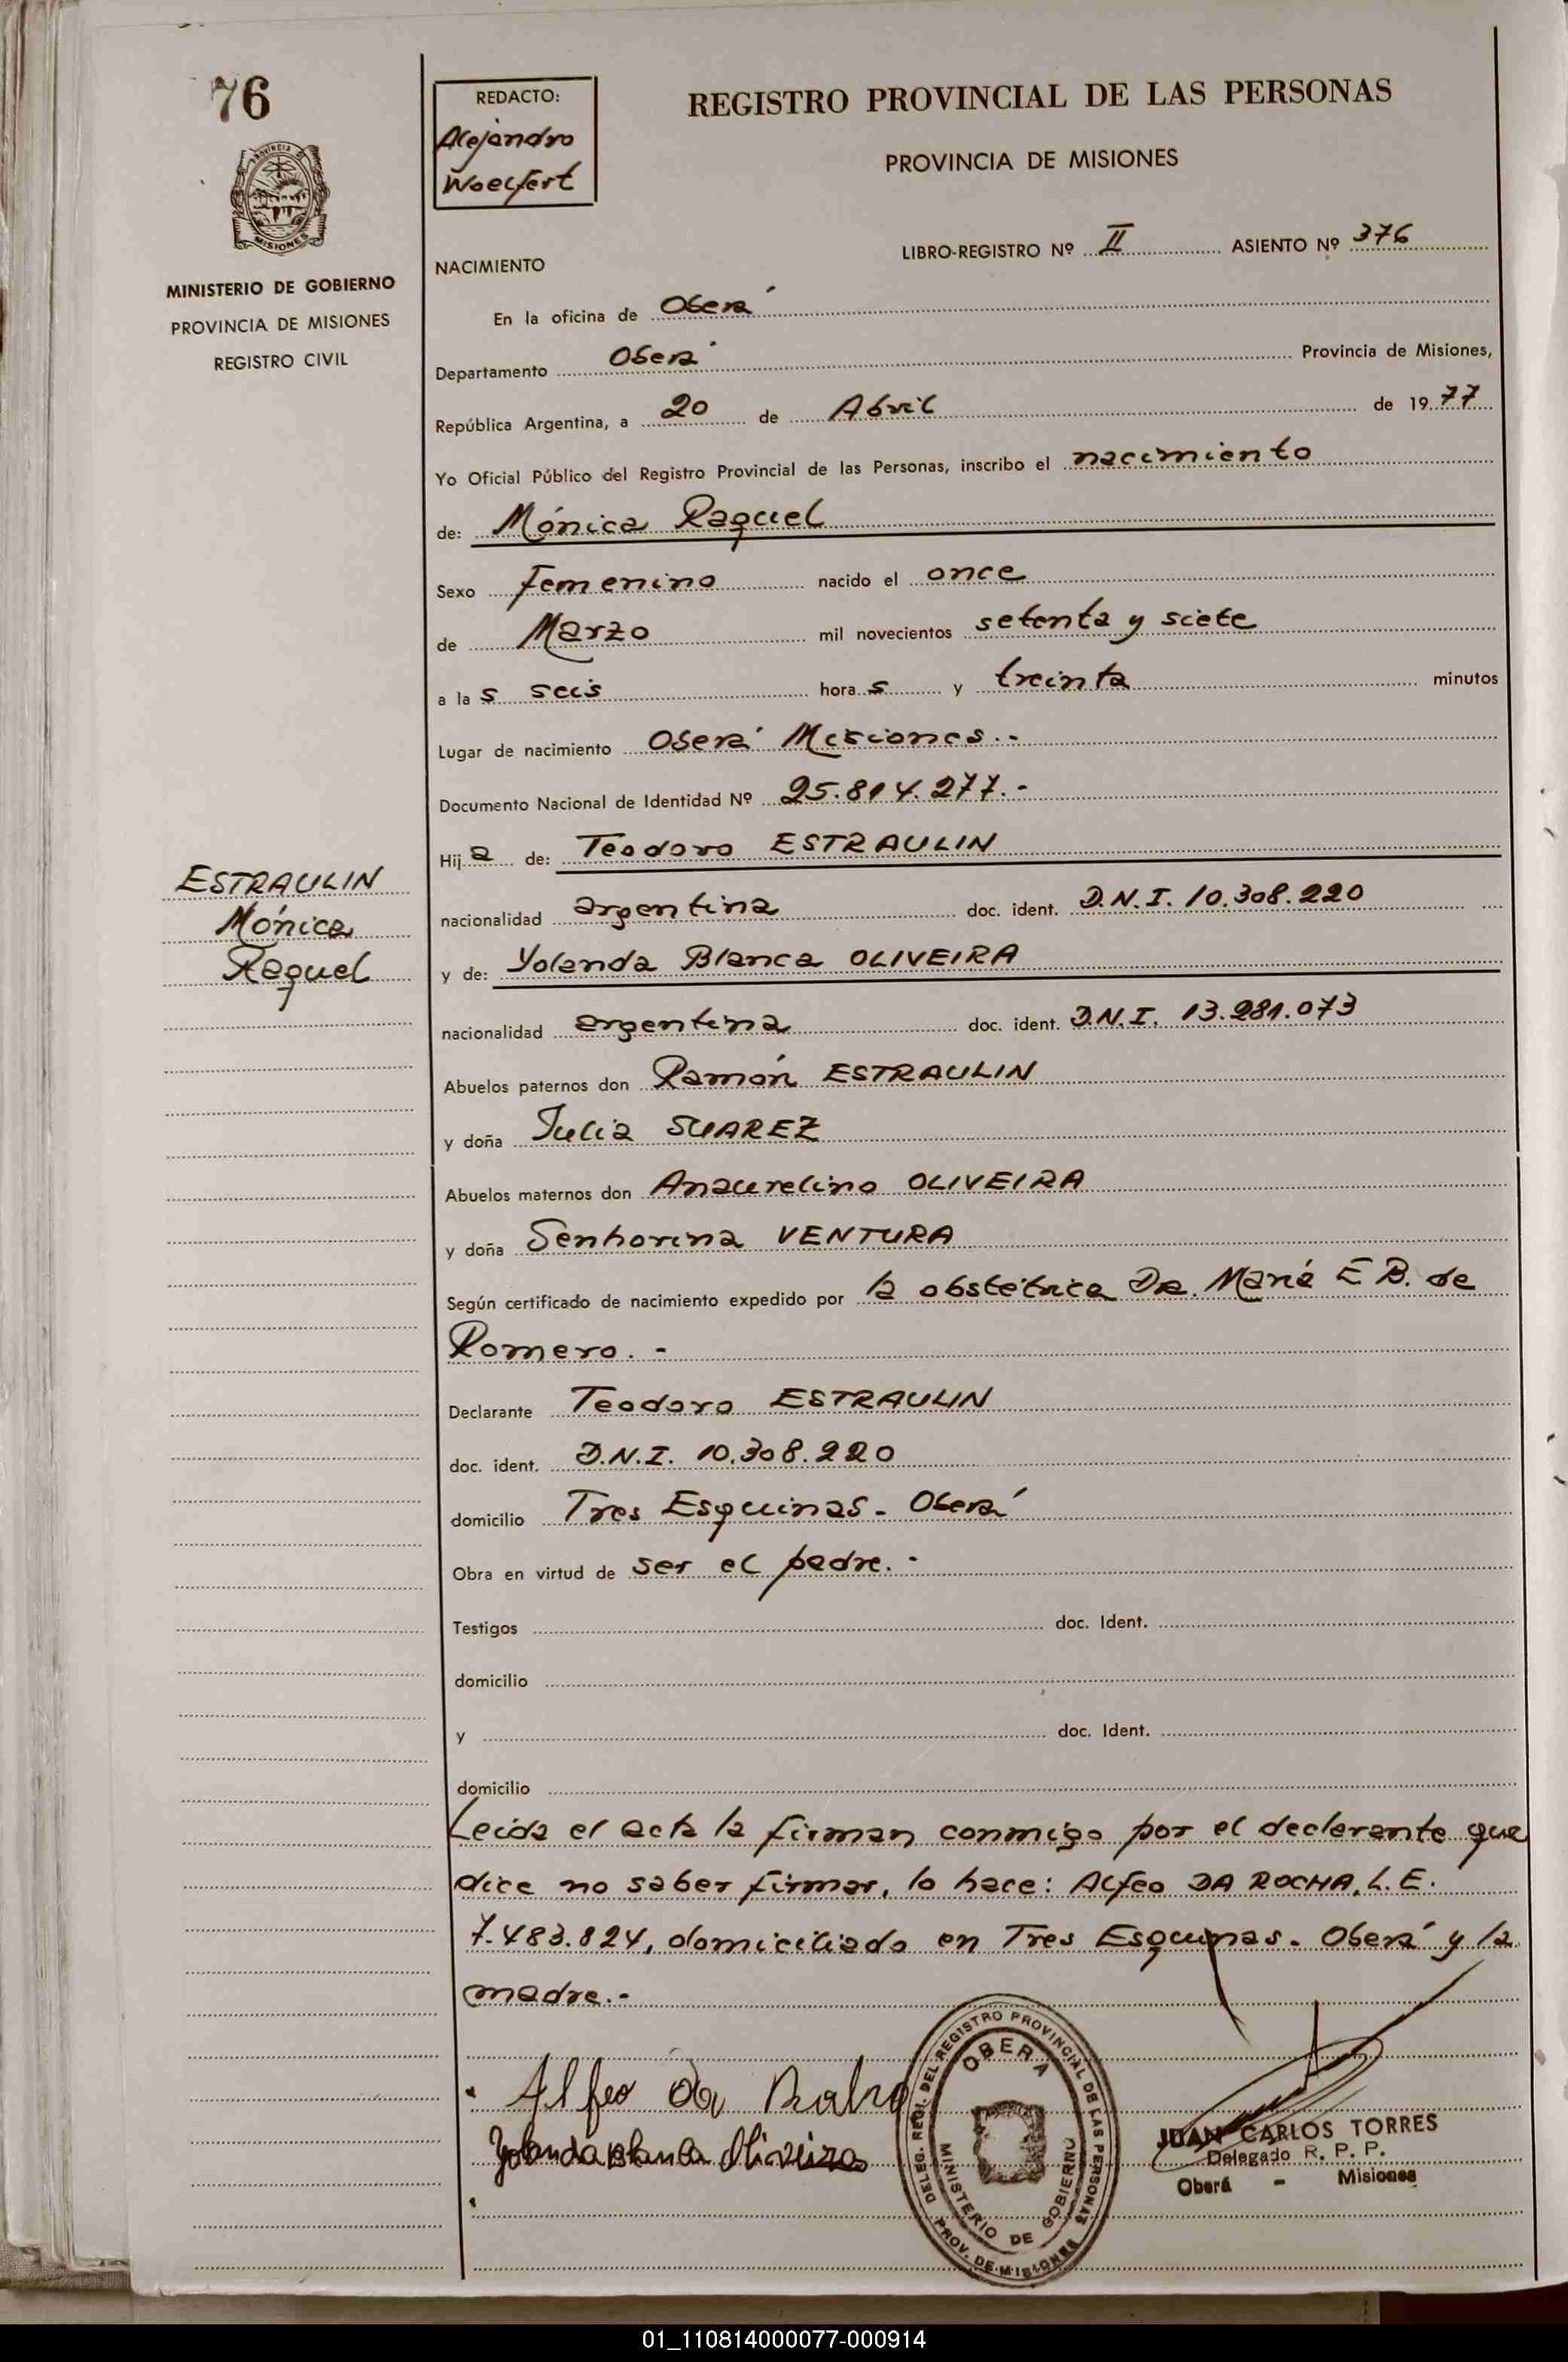 76
PROVINCIA
MISIONES
MINISTERIO DE GOBIERNO
PROVINCIA DE MISIONES
REGISTRO CIVIL
REDACTO:
Alejandro
Woelfert
REGISTRO PROVINCIAL DE LAS PERSONAS
PROVINCIA DE MISIONES
LIBRO-REGISTRO Nº II ASIENTO Nº 376
NACIMIENTO
En la oficina de Oberá
Departamento Oberá Provincia de Misiones,
República Argentina, a 20 de Abril de 1977
Yo Oficial Público del Registro Provincial de las Personas, inscribo el nacimiento
de: Mónica Raquel
Sexo Femenino nacido el once
de Marzo mil novecientos setenta y siete
a la s seis hora s y treinta minutos
Lugar de nacimiento Oberá Misiones.-
Documento Nacional de Identidad Nº 25.814.277.-
Hij a de: Teodoro ESTRAULIN
ESTRAULIN
Mónica
Raquel
nacionalidad argentina doc. ident. D.N.I. 10.308.220
y de: Yolanda Blanca OLIVEIRA
nacionalidad argentina doc. ident. D.N.I. 13.281.073
Abuelos paternos don Ramón ESTRAULIN
y doña Julia SUAREZ
Abuelos maternos don Anaurelino OLIVEIRA
y doña Senhorina VENTURA
Según certificado de nacimiento expedido por la obstétrica Da. María E B. de
Romero.-
Declarante Teodoro ESTRAULIN
doc. ident. D.N.I. 10.308.220
domicilio Tres Esquinas - Oberá
Obra en virtud de ser el padre.-
Testigos doc. Ident.
domicilio
y doc. Ident.
domicilio
Leida el acta la firman conmigo por el declarante que
dice no saber firmar, lo hace: Alfeo DA ROCHA, L.E.
7.483.824, domiciliado en Tres Esquinas - Oberá y la
madre.-
Alfeo da
Yolanda Blanca Oliveira
DELEG. REGI. DEL REGISTRO PROVINCIAL DE LAS PERSONAS
OBERA
MINISTERIO DE GOBIERNO
PROV. DE MISIONES
JUAN CARLOS TORRES
Delegado R. P. P.
Oberá - Misiones
01_110814000077-000914